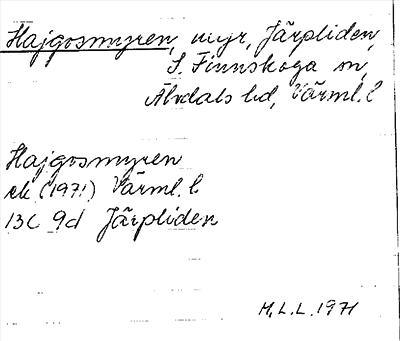 Hajgosmyren, myr, Järpliden,
S. Finnskoga sn,
Älvdals hd, Värml. l
Hajgosmyren
ek (1971) Värml. l
13C 9d Järpliden
M.L.L. 1971